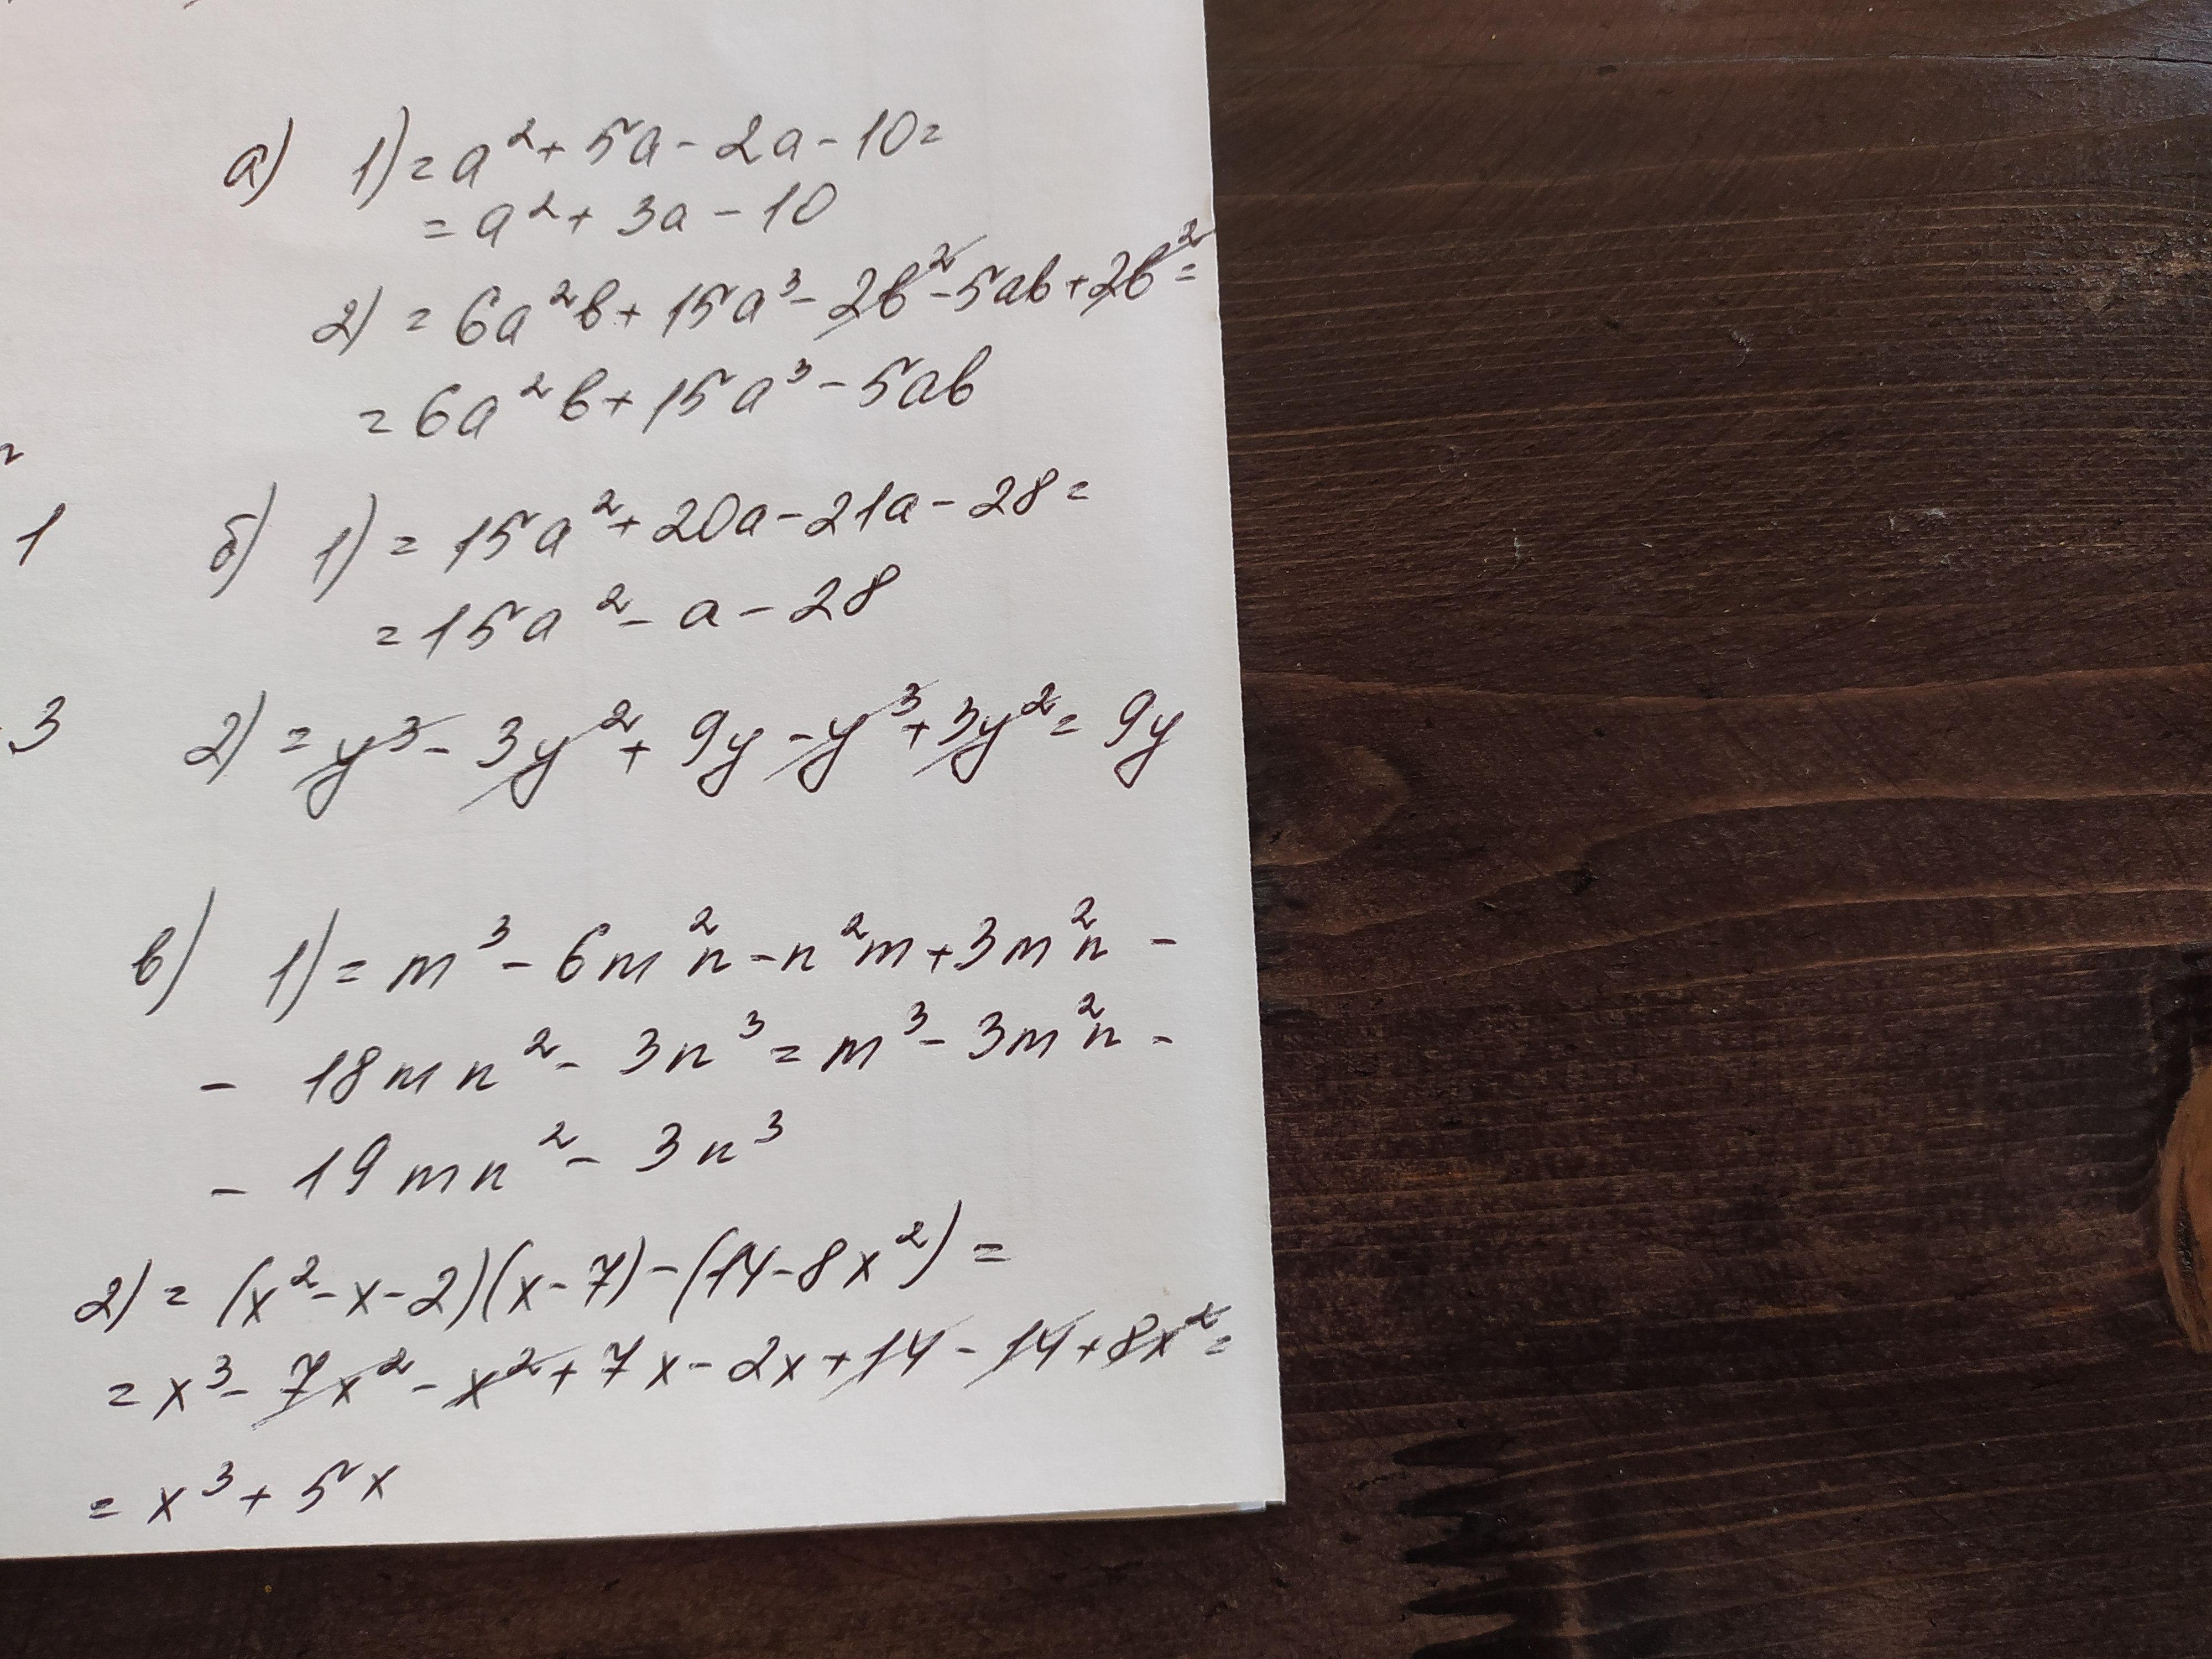 а) 1) = a² + 5a - 2a - 10 =
= a² + 3a - 10
2) = 6a²b + 15a³ - 2b² - 5ab + 2b² =
= 6a²b + 15a³ - 5ab
1
б) 1) = 15a² + 20a - 21a - 28 =
= 15a² - a - 28
3
2) = y³ - 3y² + 9y - y³ + 3y² = 9y
в) 1) = m³ - 6m²n - n²m + 3m²n -
- 18mn² - 3n³ = m³ - 3m²n -
- 19mn² - 3n³
2) = (x² - x - 2)(x - 7) - (14 - 8x²) =
= x³ - 7x² - x² + 7x - 2x + 14 - 14 + 8x² =
= x³ + 5x